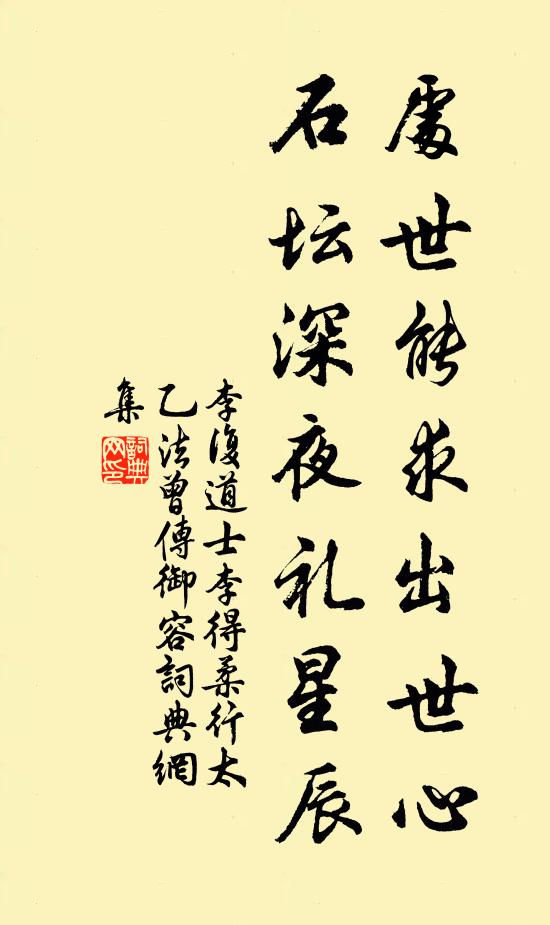 處世能求出世心
石坛深夜礼星辰
李復道士李得柔行太
乙法曾傳御容詞典網
集
詞典
网印